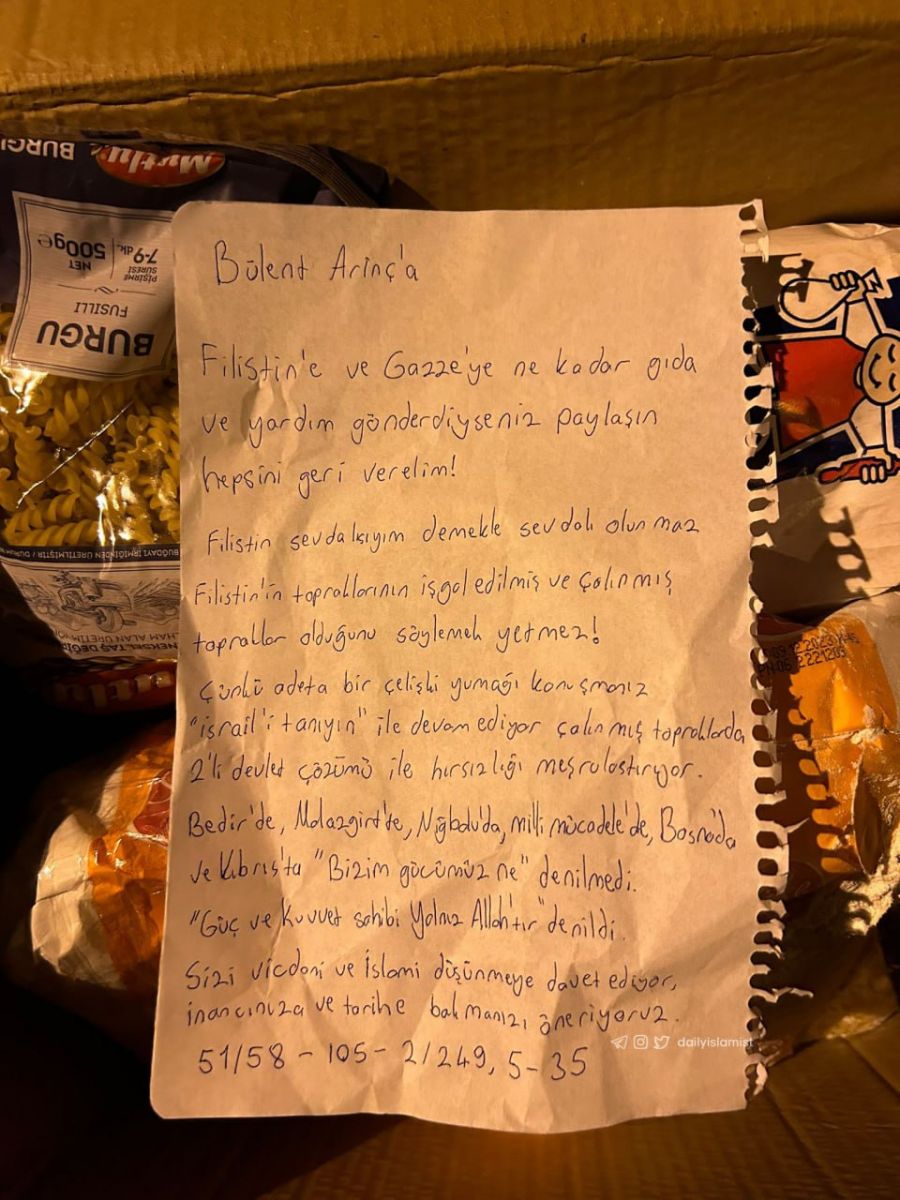 Mutlu
BURGU
BURGU
FUSILLI
PİŞİRME
SÜRESİ
7-9 dk.
NET
500g e
BUĞDAYI İRMİĞİNDEN ÜRETİLMİŞTİR / DURUM
HAM ALAN ÜRETİM
Bülent Arinç'a
Filistin'e ve Gazze'ye ne kadar gıda
ve yardım gönderdiyseniz paylaşın
hepsini geri verelim!
Filistin sevdalısıyım demekle sevdalı olunmaz
Filistin'in topraklarının işgal edilmiş ve çalınmış
topraklar olduğunu söylemek yetmez!
Çünkü adeta bir çelişki yumağı konuşmanız
"israil'i tanıyın" ile devam ediyor çalınmış topraklarda
2'li devlet çözümü ile hırsızlığı meşrulaştırıyor.
Bedir'de, Malazgirt'te, Niğbolu'da, milli mücadele'de, Bosna'da
ve Kıbrıs'ta "Bizim gücümüz ne" denilmedi.
"Güç ve Kuvvet sahibi Yalnız Allah'tır" denildi.
Sizi vicdani ve İslami düşünmeye davet ediyor,
inancınıza ve tarihe bakmanızı öneriyoruz.
51/58 - 105 - 2/249, 5-35
dailyislamist